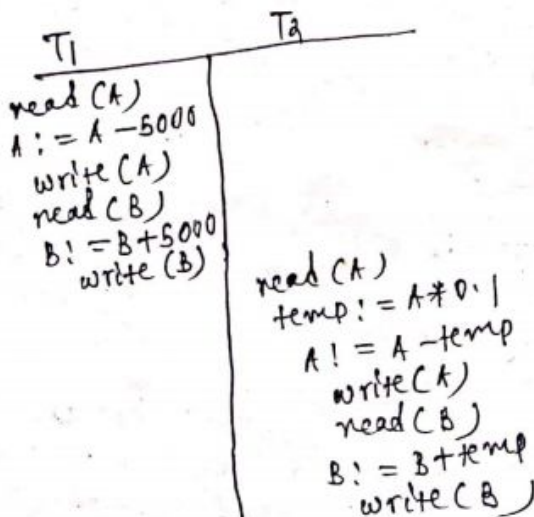 T1 T2
read (A)
A := A - 5000
write (A)
read (B)
B := B + 5000
write (B)
read (A)
temp := A * 0.1
A := A - temp
write (A)
read (B)
B := B + temp
write (B)